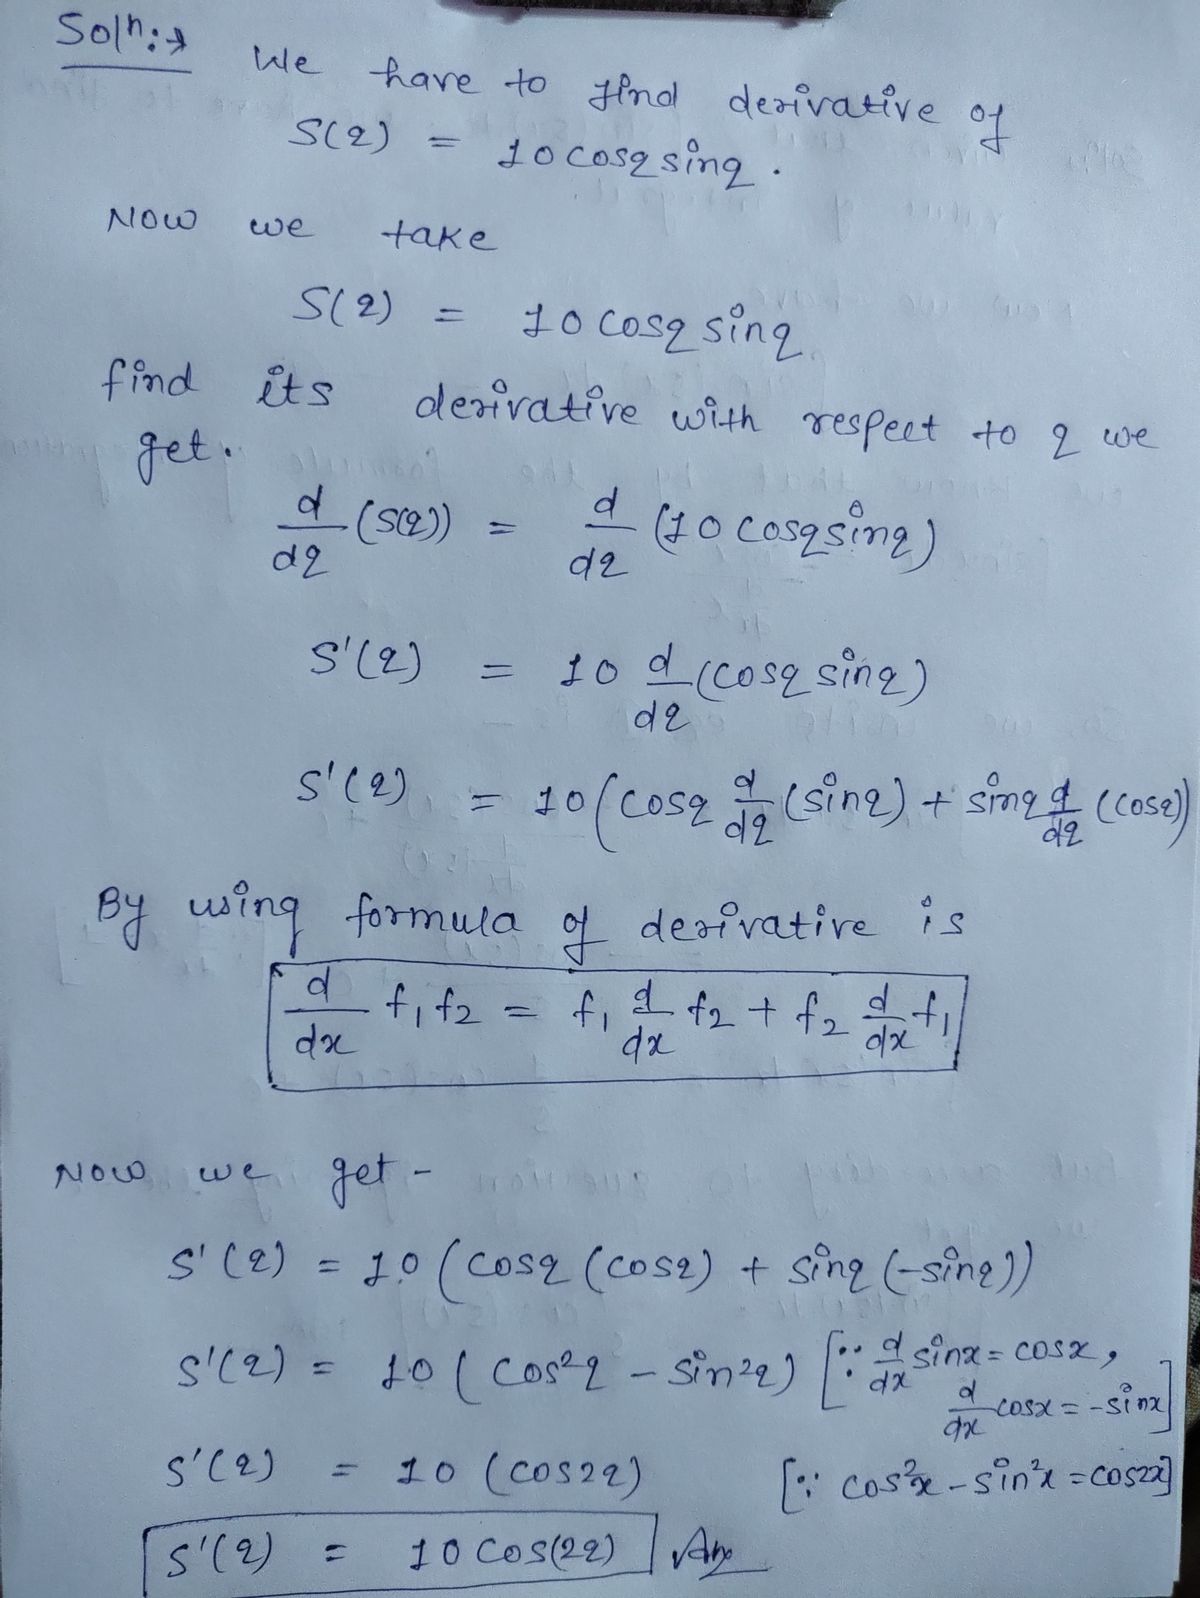 Solⁿ:→ We have to find derivative of
S(q) = 10 cosq sinq.
Now we take
S(q) = 10 cosq sinq
find its derivative with respect to q we
get.
d/dq (S(q)) = d/dq (10 cosq sinq)
S'(q) = 10 d/dq (cosq sinq)
S'(q) = 10 (cosq d/dq (sinq) + sinq d/dq (cosq))
By using formula of derivative is
d/dx f₁ f₂ = f₁ d/dx f₂ + f₂ d/dx f₁
Now we get -
S'(q) = 10 (cosq (cosq) + sinq (-sinq))
S'(q) = 10 (cos²q - sin²q) [∵ d/dx sinx = cosx,
d/dx cosx = -sinx]
S'(q) = 10 (cos2q) [∵ cos²x - sin²x = cos2x]
S'(q) = 10 cos(2q) Ans